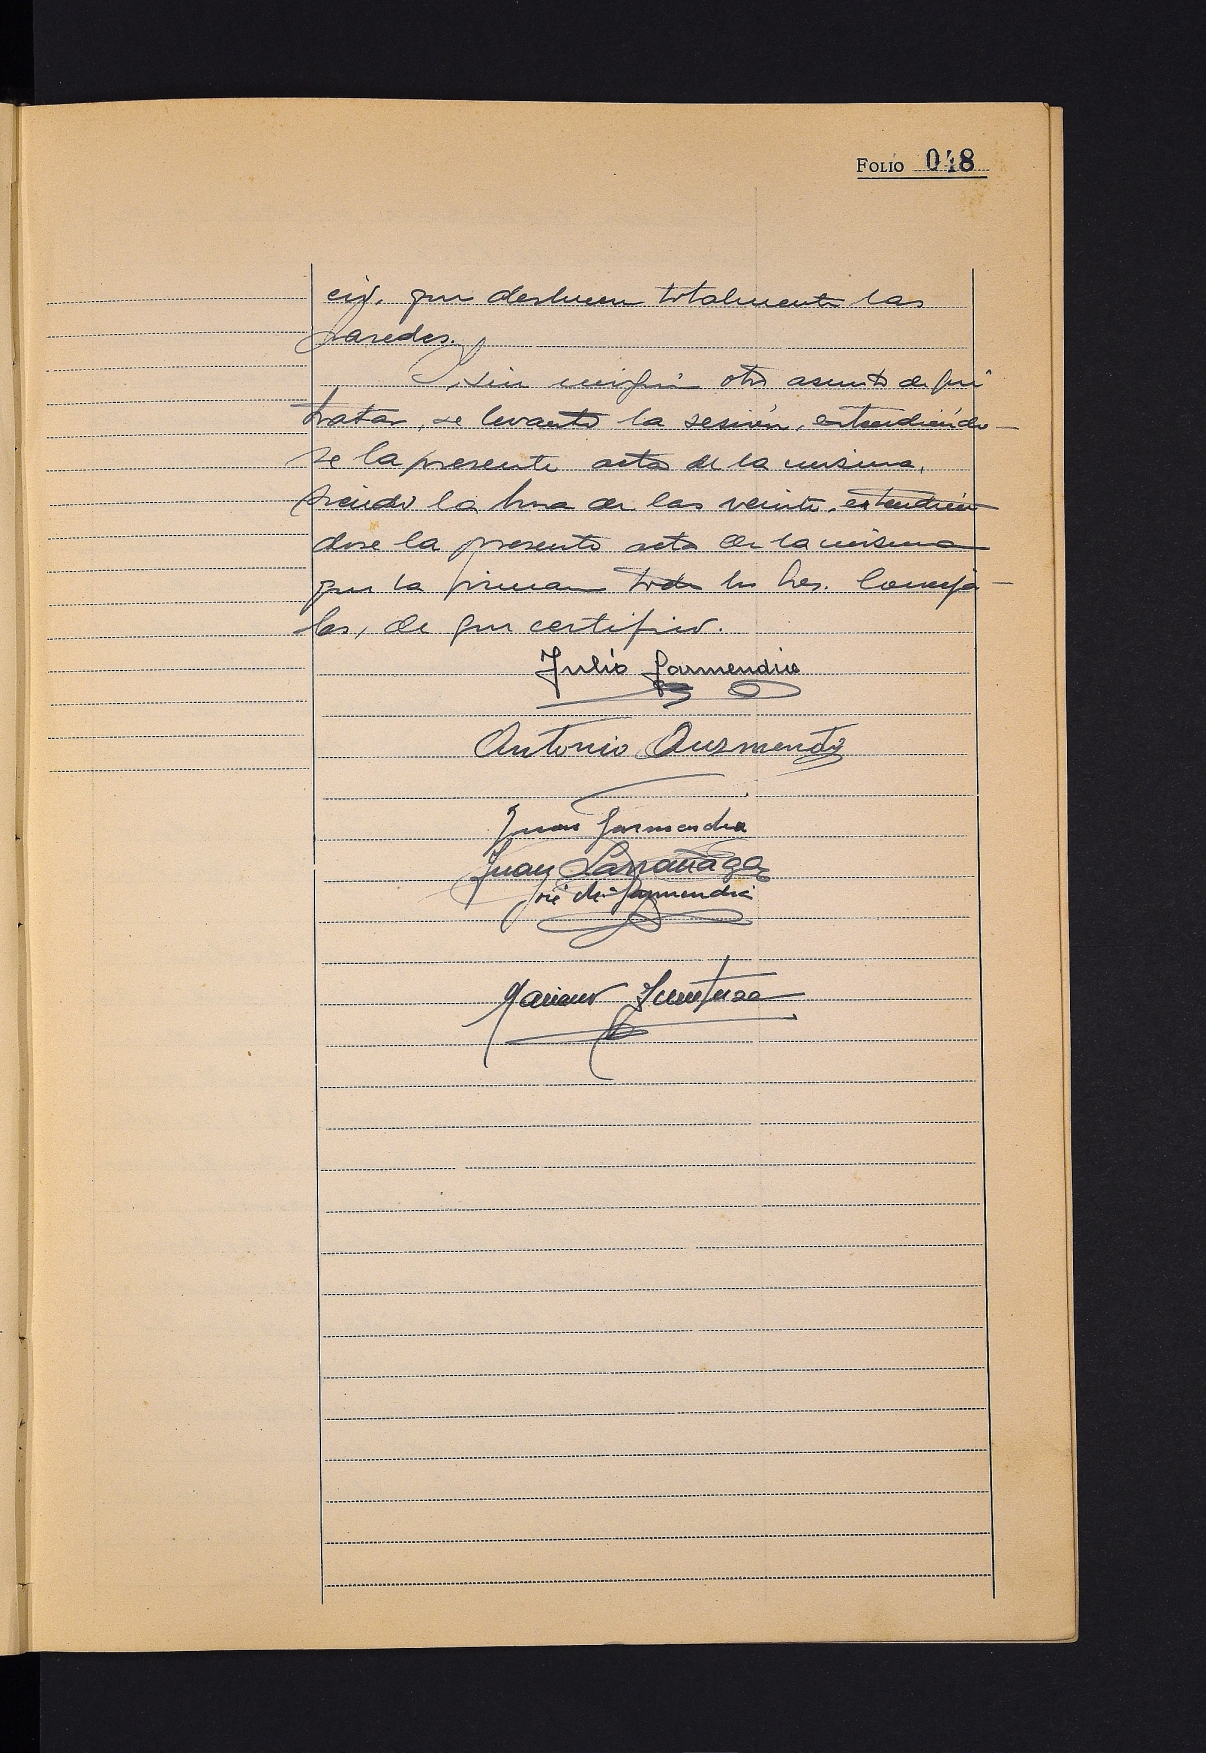 FOLIO 048
cio, que deslucen totalmente las
paredes.
Y, sin ningún otro asunto de qué
tratar, se levantó la sesión, extendiéndo-
se la presente acta de la misma,
siendo la hora de las veinte, extendién
dose la presente acta de la misma
que la firman todos los Sres. Conceja-
les, de que certifico.
Julio Garmendia
Antonio Auzmendi
Juan Garmendia
Juan Larrañaga
José Mª Garmendia
Mariano